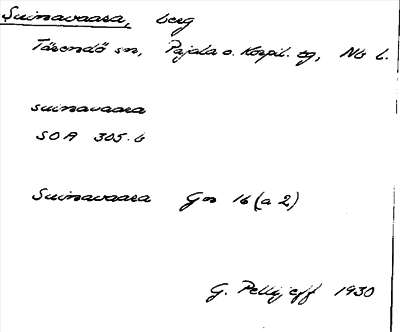 Suinavaara, berg
Tärendö sn, Pajala o. Korpil. tg, Nb l.
suinavaara
SOA 305.6
Suinavaara Gn 16 (a 2)
G. Pellijeff 1930